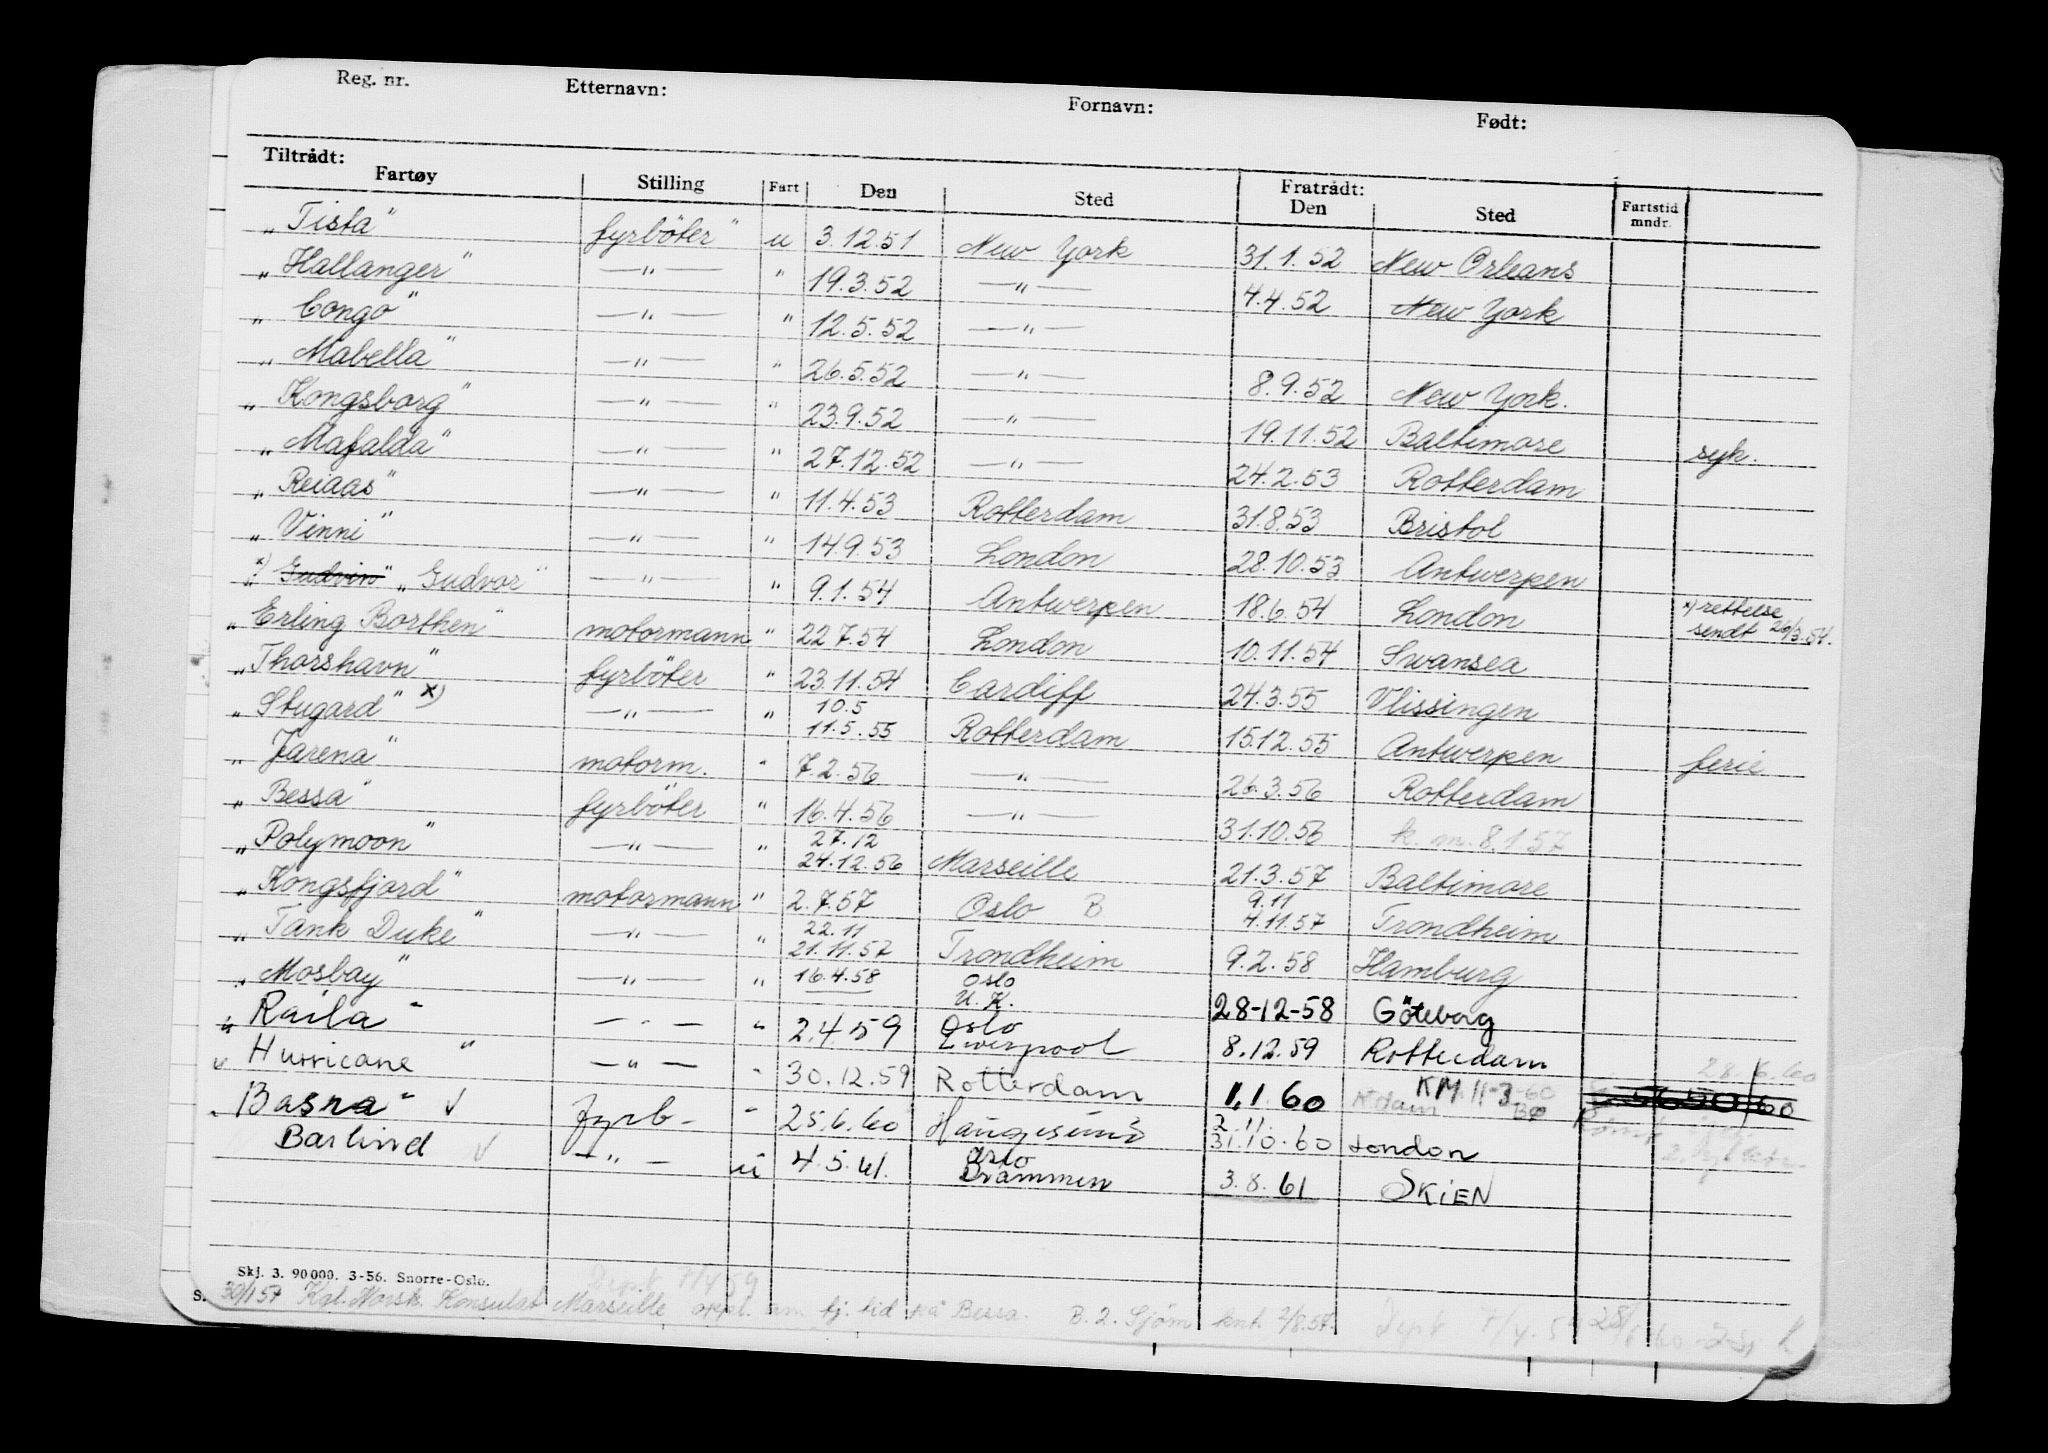 Reg. nr. Etternavn: Fornavn: Født:
Tiltrådt: Fratrådt:
Fartøy Stilling Fart Den Sted Den Sted Fartstid mndr.
„Tista" fyrböter" u 3.12.51 New York 31.1.52 New Orleans
„Hallanger" —"— " 19.3.52 —"— 4.4.52 New York
„Congo" —"— " 12.5.52 —"—
„Mabella" —"— " 26.5.52 —"— 8.9.52 New York.
„Kongsborg" —"— " 23.9.52 —"— 19.11.52 Baltimore syk.
„Mafalda" —"— " 27.12.52 —"— 24.2.53 Rotterdam
„Reiaas" —"— " 11.4.53 Rotterdam 31.8.53 Bristol
„Vinni" —"— " 14.9.53 London 28.10.53 Antwerpen
x) „Gudvin" „Gudvor" —"— " 9.1.54 Antwerpen 18.6.54 London x) rettelse sendt 26/3.54.
„Erling Borthen" motormann " 22.7.54 London 10.11.54 Swansea
„Thorshavn" fyrböter " 23.11.54 Cardiff 24.3.55 Vlissingen
„Stugard" x) —"— " 10.5 11.5.55 Rotterdam 15.12.55 Antwerpen ferie
„Jarena" motorm. " 7.2.56 —"— 26.3.56 Rotterdam
„Bessa" fyrböter " 16.4.56 —"— 31.10.56 k. m. 8.1 57
„Polymoon" —"— " 27.12 24.12.56 Marseille 21.3.57 Baltimore
„Kongsfjord" motormann " 2.7.57 Oslo B 9.11 4.11.57 Trondheim
„Tank Duke" —"— " 22.11 21.11.57 Trondheim 9.2.58 Hamburg
„Mosbay" —"— " 16.4.58 Oslo U.K. 28-12-58 Göteborg
„Raila" —"— " 2.4.59 Oslo Liverpool 8.12.59 Rotterdam
Hurricane " —"— " 30.12.59 Rotterdam 1.1.60 R'dam KM 11-3-60 28/6.60
„Basra" v fyrb. " 25.6.60 Haugesund 2.11. 31.10.60 London
Barlind v —"— u 4.5.61. Oslo Drammen 3.8.61 SKIEN
Skj. 3. 90 000. 3-56. Snorre-Oslo. Dept. 7/4 59
S. 30/1 57 Kgl. Norsk. Konsulat Marseille oppl. om tj. tid på Bessa. B. 2. Sjöm knt 2/8.57. Dept 7/4.59 28/6 60